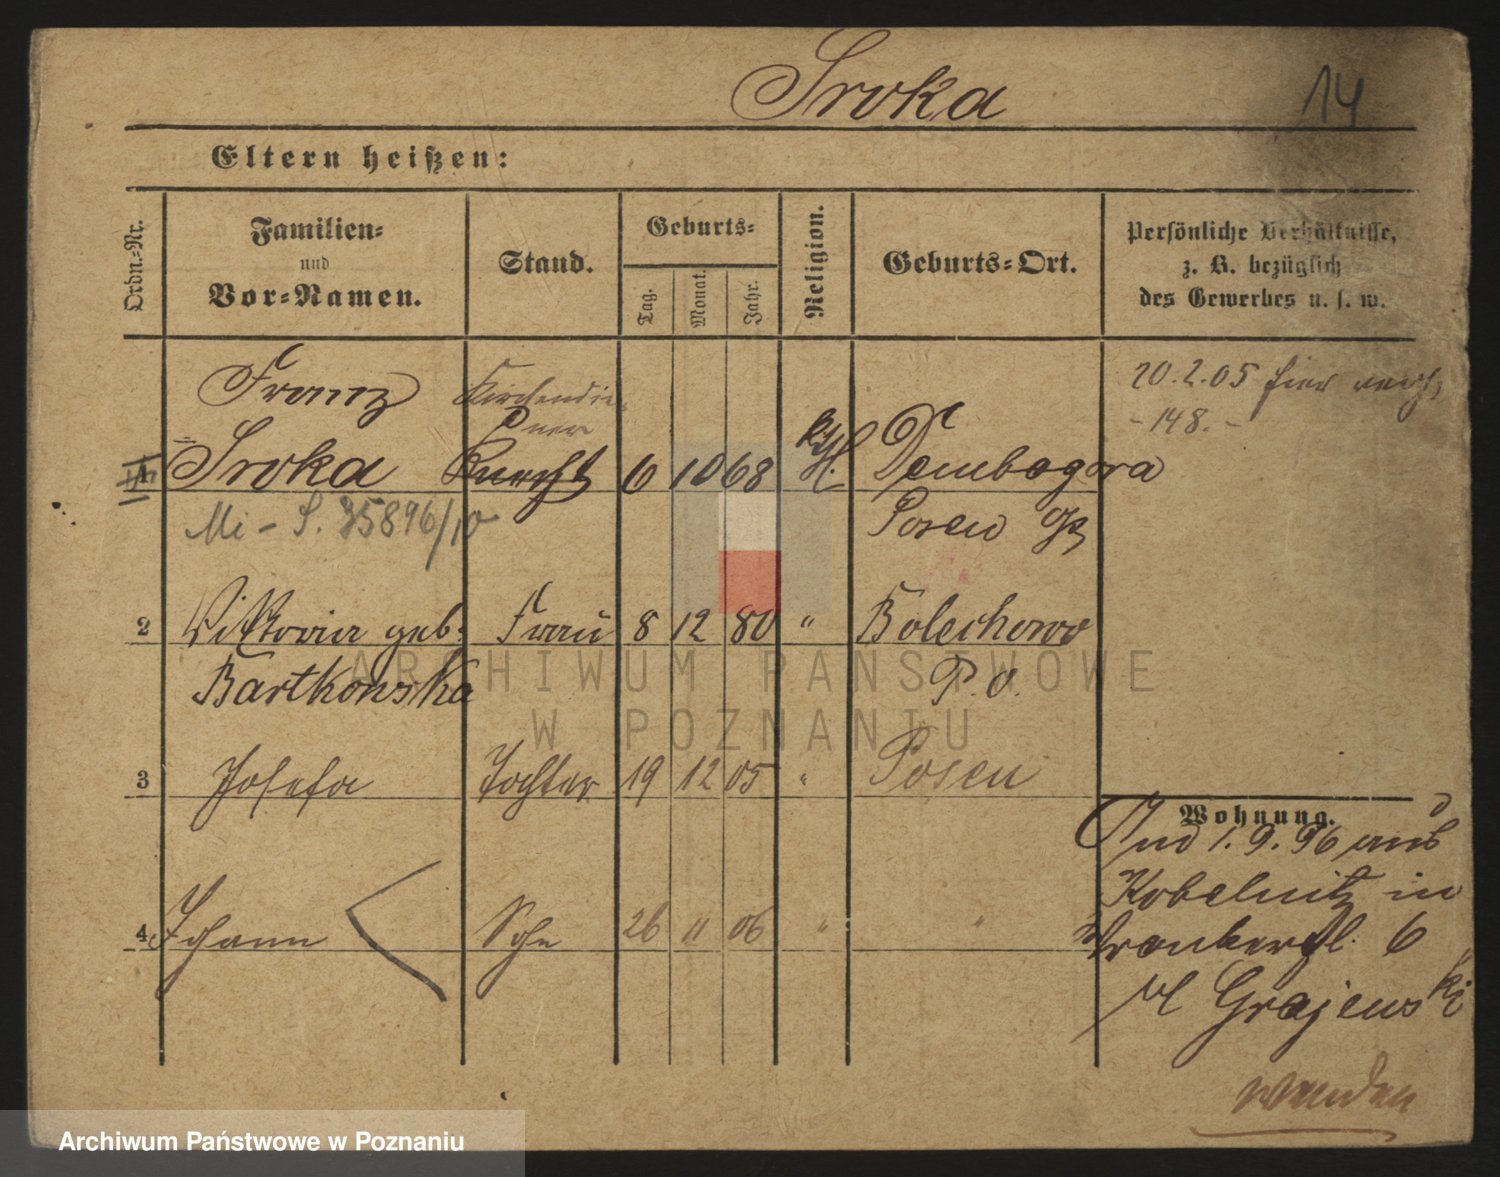 Sroka
14
Eltern heißen:
Ordn.-Nr.
Familien-
und
Vor-Namen.
Stand.
Geburts-
Tag.
Monat.
Jahr.
Religion.
Geburts-Ort.
Persönliche Verhältnisse,
z. B. bezüglich
des Gewerbes u. s. w.
Franz Kirchendie- 20.2.05 hier
ner - 148. -
1 Sroka Knecht 6 10 68 kth. Dembogora
Mi - S. 35896/10 Posen
2 Viktoria geb. Frau 8 12 80 " Bolechowo
Bartkowska P. O.
3 Josefa Tochter 19 12 05 " Posen
Wohnung.
1.9.96 aus
Kobelnitz in
4 Johann Sohn 26 11 06 " " 6
Grajewski
wenden
ARCHIWUM PAŃSTWOWE
W POZNANIU
Archiwum Państwowe w Poznaniu